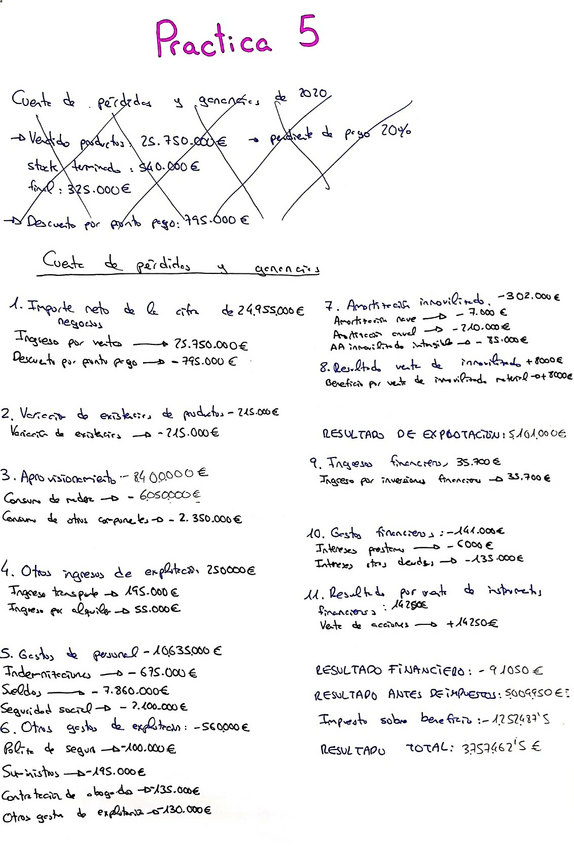 Practica 5
Cuenta de pérdidas y ganancias de 2020
→ Vendido productos: 25.750.000€ → pendiente de pago 20%
stock terminado: 540.000€
final: 325.000€
→ Descuento por pronto pago: 795.000€
Cuenta de pérdidas y ganancias
1. Importe neto de la cifra de 24,955,000€
negocios
Ingreso por ventas → 25.750.000€
Descuento por pronto pago → -795.000€
2. Variación de existencias de productos - 215.000€
Variación de existencias → -215.000€
3. Aprovisionamiento - 8400000€
Consumo de madera → - 6050000€
Consumo de otros componentes → - 2.350.000€
4. Otros ingresos de explotación 250000€
Ingreso transporte → 195.000€
Ingreso por alquiler → 55.000€
5. Gastos de personal - 10635000€
Indemnizaciones → - 675.000€
Sueldos → - 7.860.000€
Seguridad social → - 2.100.000€
6. Otros gastos de explotación: -560000€
Poliza de seguro → -100.000€
Suministros → -195.000€
Contratación de abogado → -135.000€
Otros gastos de explotación → -130.000€
7. Amortización inmovilizado. -302.000€
Amortización nave → - 7.000€
Amortización anual → - 210.000€
AA inmovilizado intangible → - 85.000€
8. Resultado venta de inmovilizado +8000€
Beneficio por venta de inmovilizado material → +8000€
RESULTADO DE EXPLOTACIÓN: 5,101,000€
9. Ingreso financiero, 35.700€
Ingreso por inversiones financiero → 35.700€
10. Gastos financieros: -141.000€
Intereses prestamo → - 6000€
Intereses otras deudas → -135.000€
11. Resultado por venta de instrumentos
financieros: 14250€
Venta de acciones → +14250€
RESULTADO FINANCIERO: - 91050€
RESULTADO ANTES DE IMPUESTOS: 5009950€
Impuesto sobre beneficio: - 1252487'5
RESULTADO TOTAL: 3757462'5 €